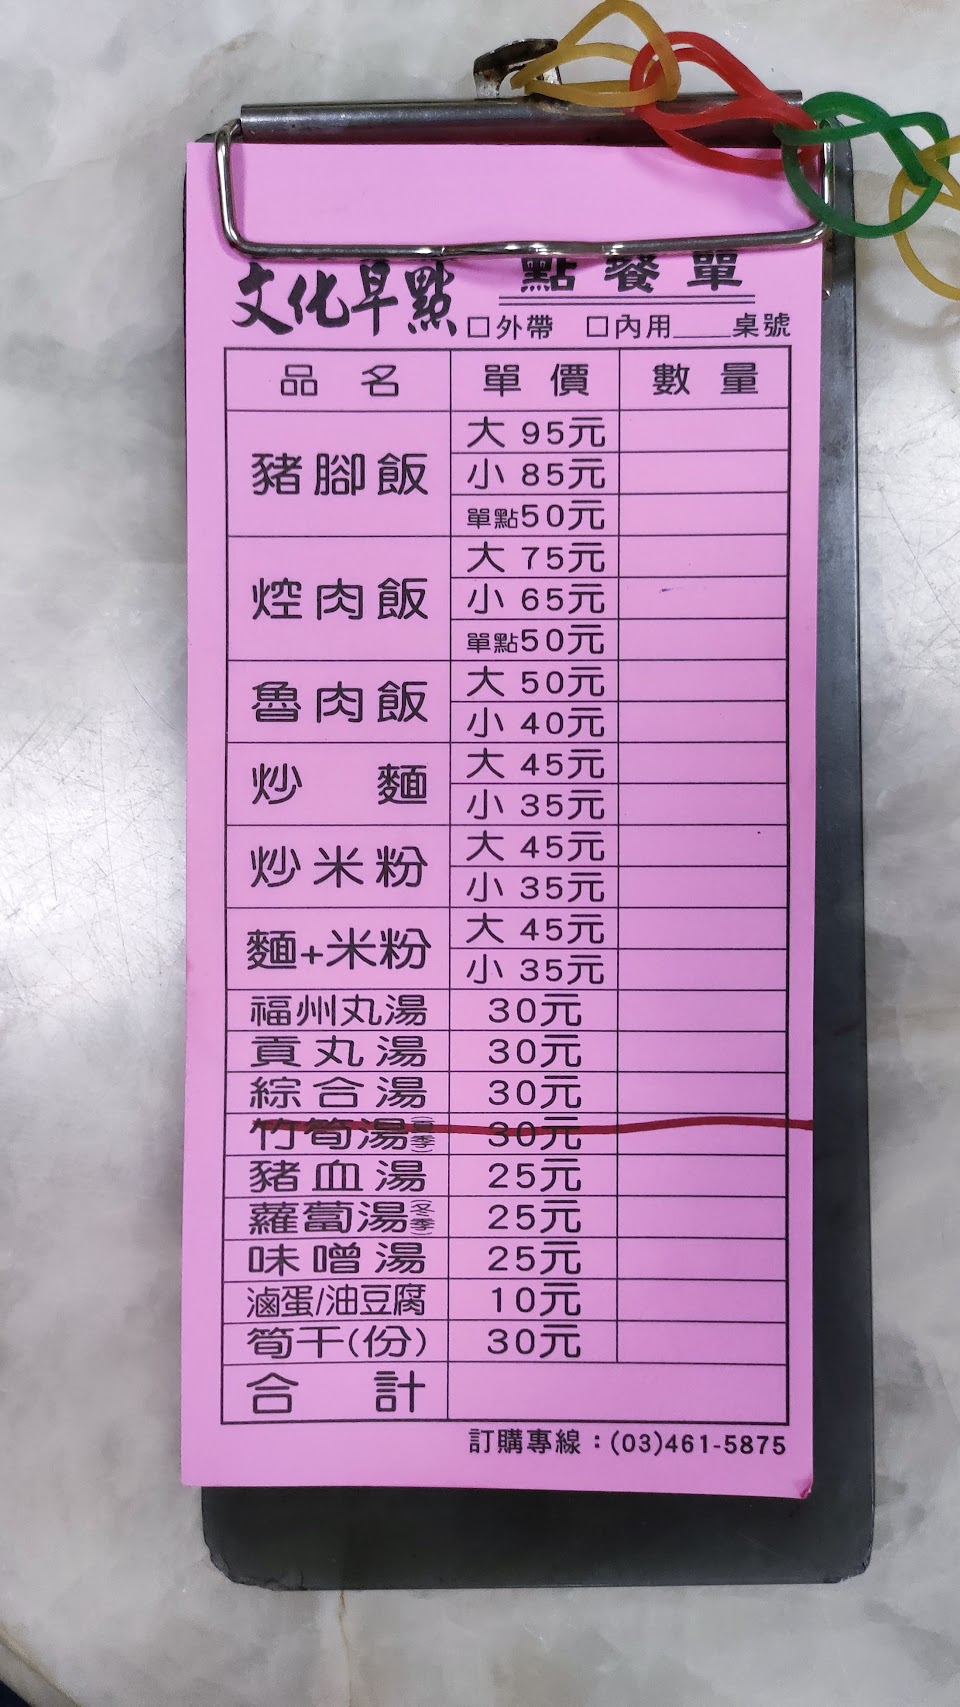 點餐單
文化早點
□外帶 □內用____桌號
品名 單價 數量
豬腳飯 大 95元
小 85元
單點50元
焢肉飯 大 75元
小 65元
單點50元
魯肉飯 大 50元
小 40元
炒麵 大 45元
小 35元
炒米粉 大 45元
小 35元
麵+米粉 大 45元
小 35元
福州丸湯 30元
貢丸湯 30元
綜合湯 30元
竹筍湯(夏季) 30元
豬血湯 25元
蘿蔔湯(冬季) 25元
味噌湯 25元
滷蛋/油豆腐 10元
筍干(份) 30元
合計
訂購專線：(03)461-5875